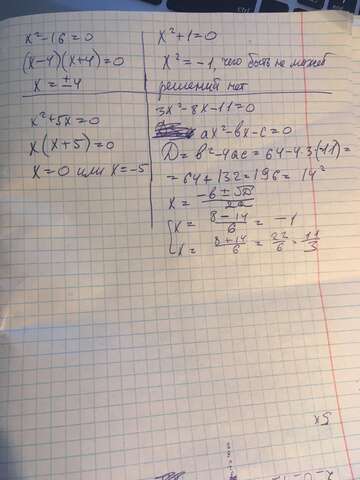 x²-16=0
(x-4)(x+4)=0
x=±4
x²+5x=0
x(x+5)=0
x=0 или x=-5
x²+1=0
x²=-1, чего быть не может
решений нет
3x²-8x-11=0
ax²-bx-c=0
D=b²-4ac=64-4·3·(-11)=
=64+132=196=14²
x=\frac{-b±√D}{2a}
x=\frac{8-14}{6}=-1
x=\frac{8+14}{6}=\frac{22}{6}=\frac{11}{3}
5x